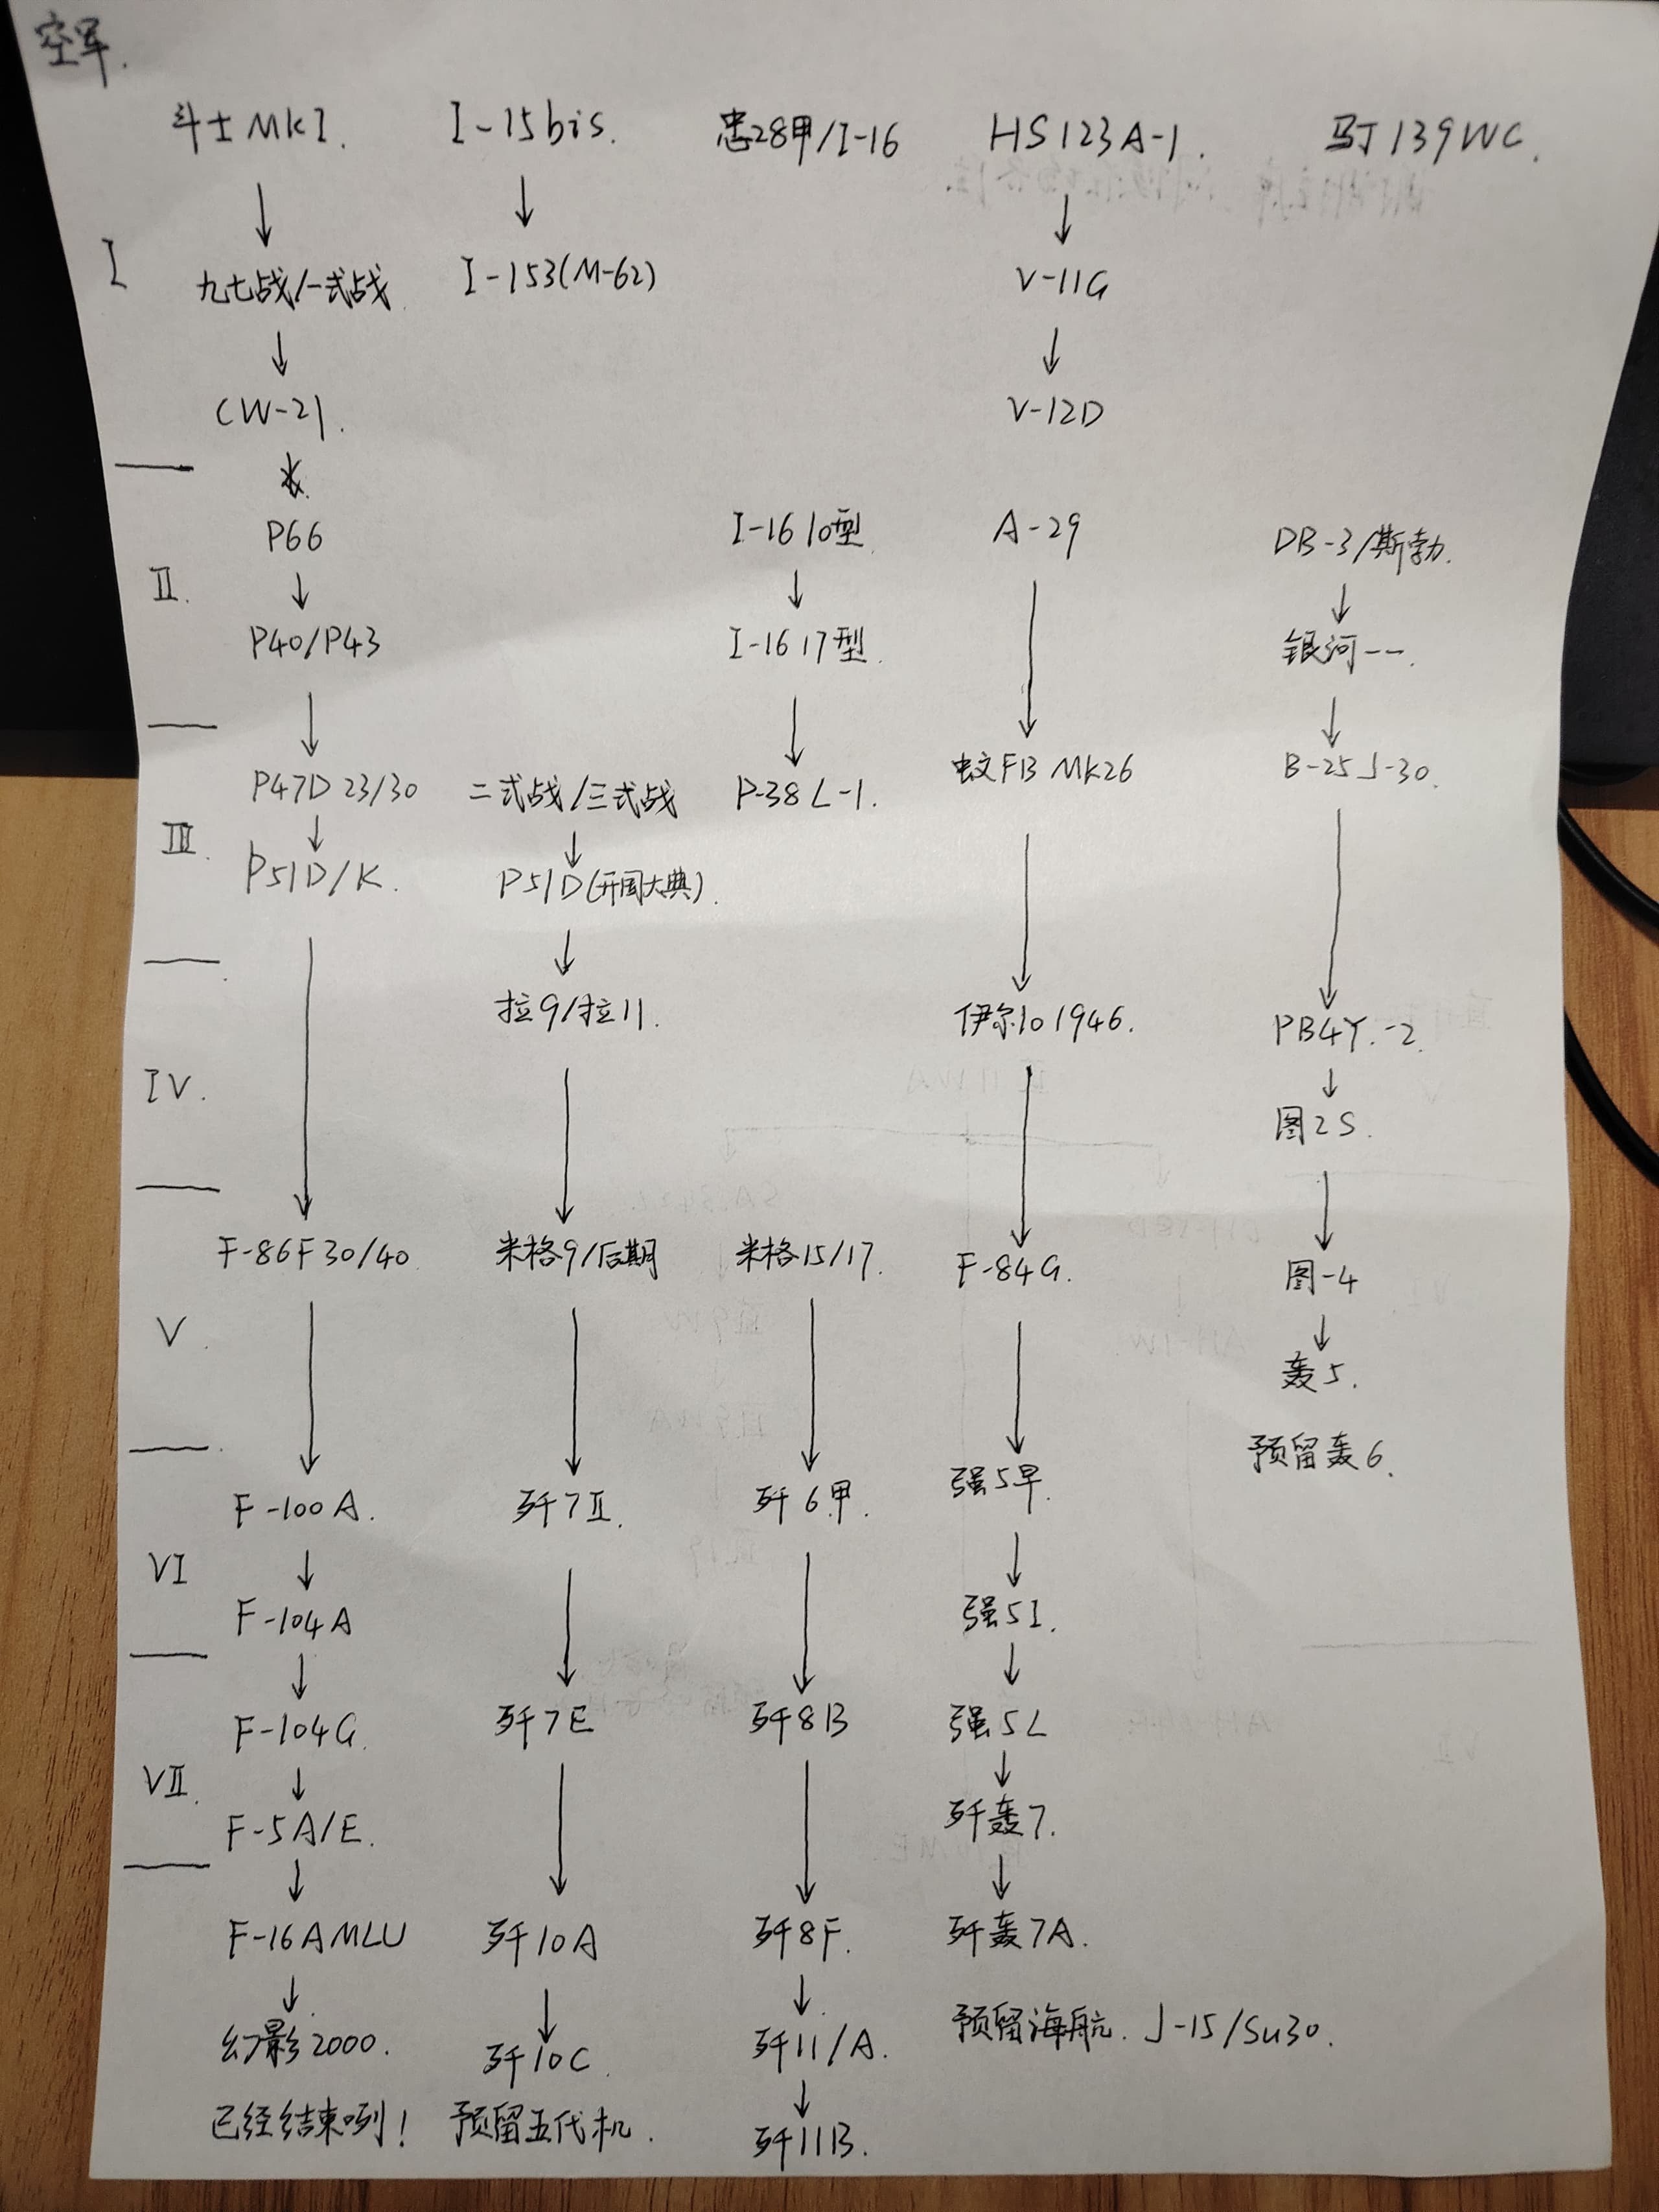 空军.
斗士MKI. I-15bis. 忠28甲/I-16 HS123A-1. 马丁139WC.
I
九七战/一式战 I-153(M-62) V-11G
CW-21. V-12D
P66 I-16 10型 A-29 DB-3/斯勃.
II.
P40/P43 I-16 17型. 银河一一.
P47D 23/30 二式战/三式战 P-38L-1. 蚊FB MK26 B-25J-30.
III.
P51D/K. P51D(开国大典).
拉9/拉11. 伊尔10 1946. PB4Y.-2.
IV.
图2S.
F-86F30/40 米格9/后期 米格15/17. F-84G. 图-4
V.
轰5.
预留轰6.
F-100A. 歼7II. 歼6甲. 强5早.
VI
F-104A 强5I.
F-104G. 歼7E 歼8B 强5L
VII.
F-5A/E. 歼轰7.
F-16AMLU 歼10A 歼8F. 歼轰7A.
幻影2000. 歼10C. 歼11/A. 预留海航. J-15/Su30.
已经结束咧! 预留五代机. 歼11B.